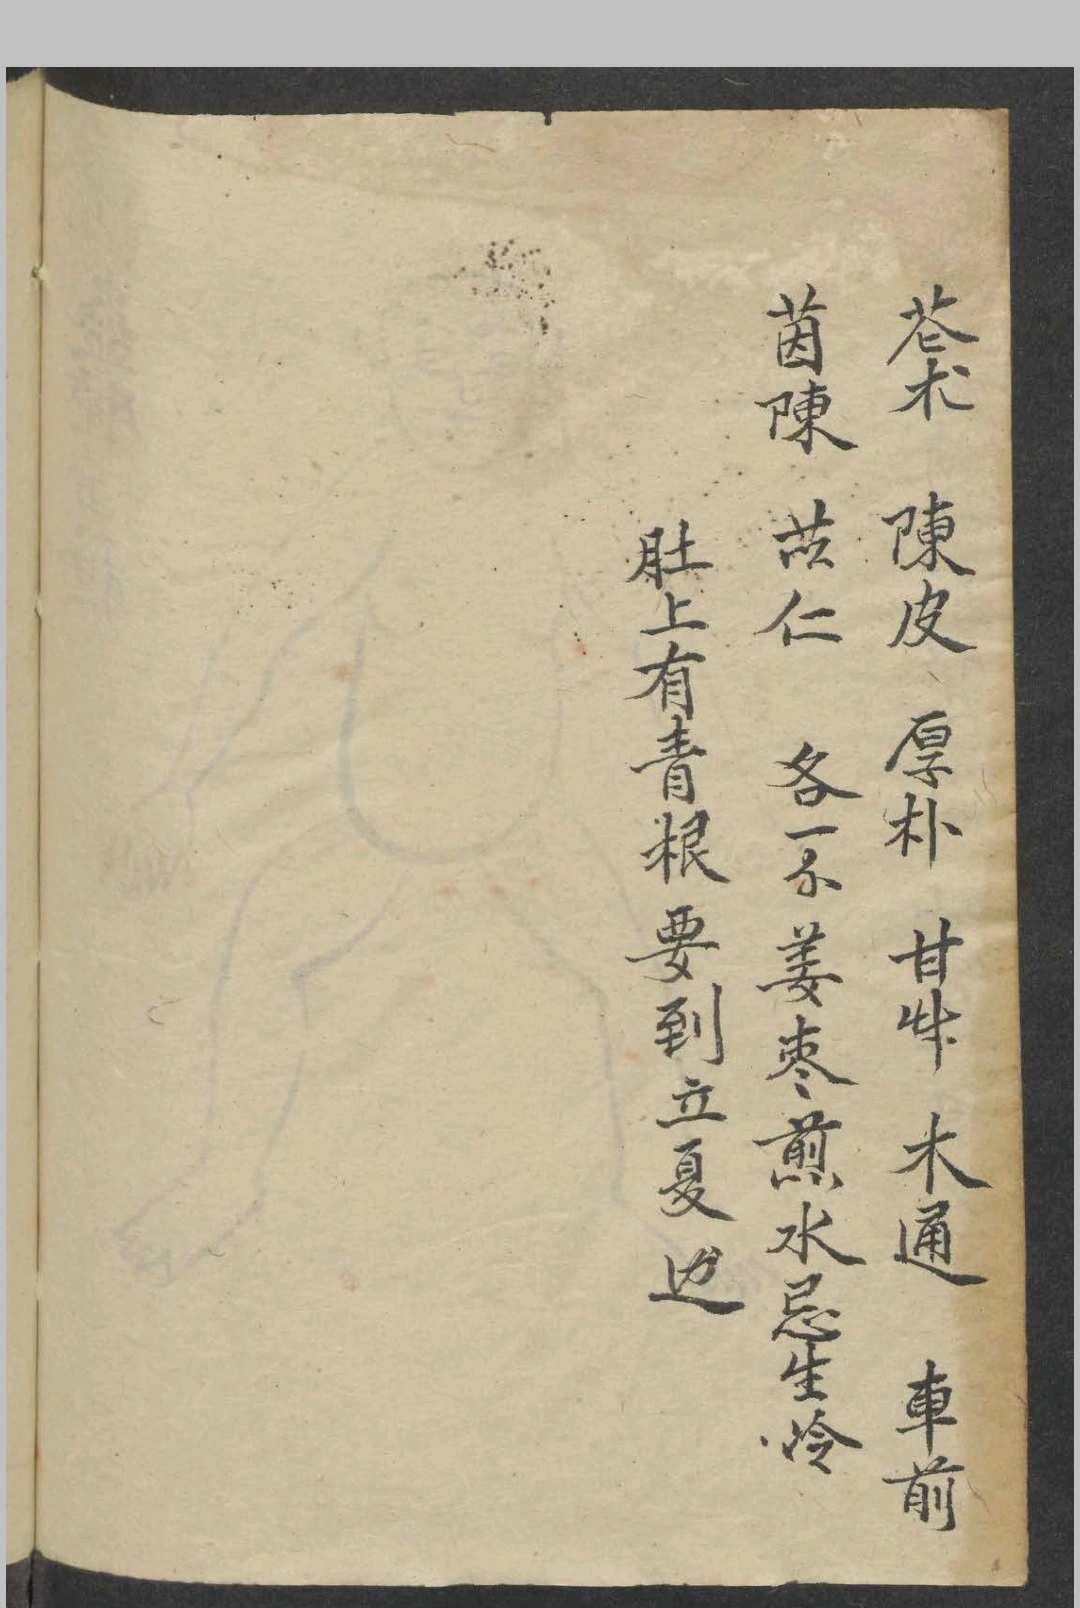 蒼术 陳皮 厚朴 甘草 木通 車前
茵陳 苡仁 各一不 姜枣煎水忌生冷
肚上有青根 要到立夏边